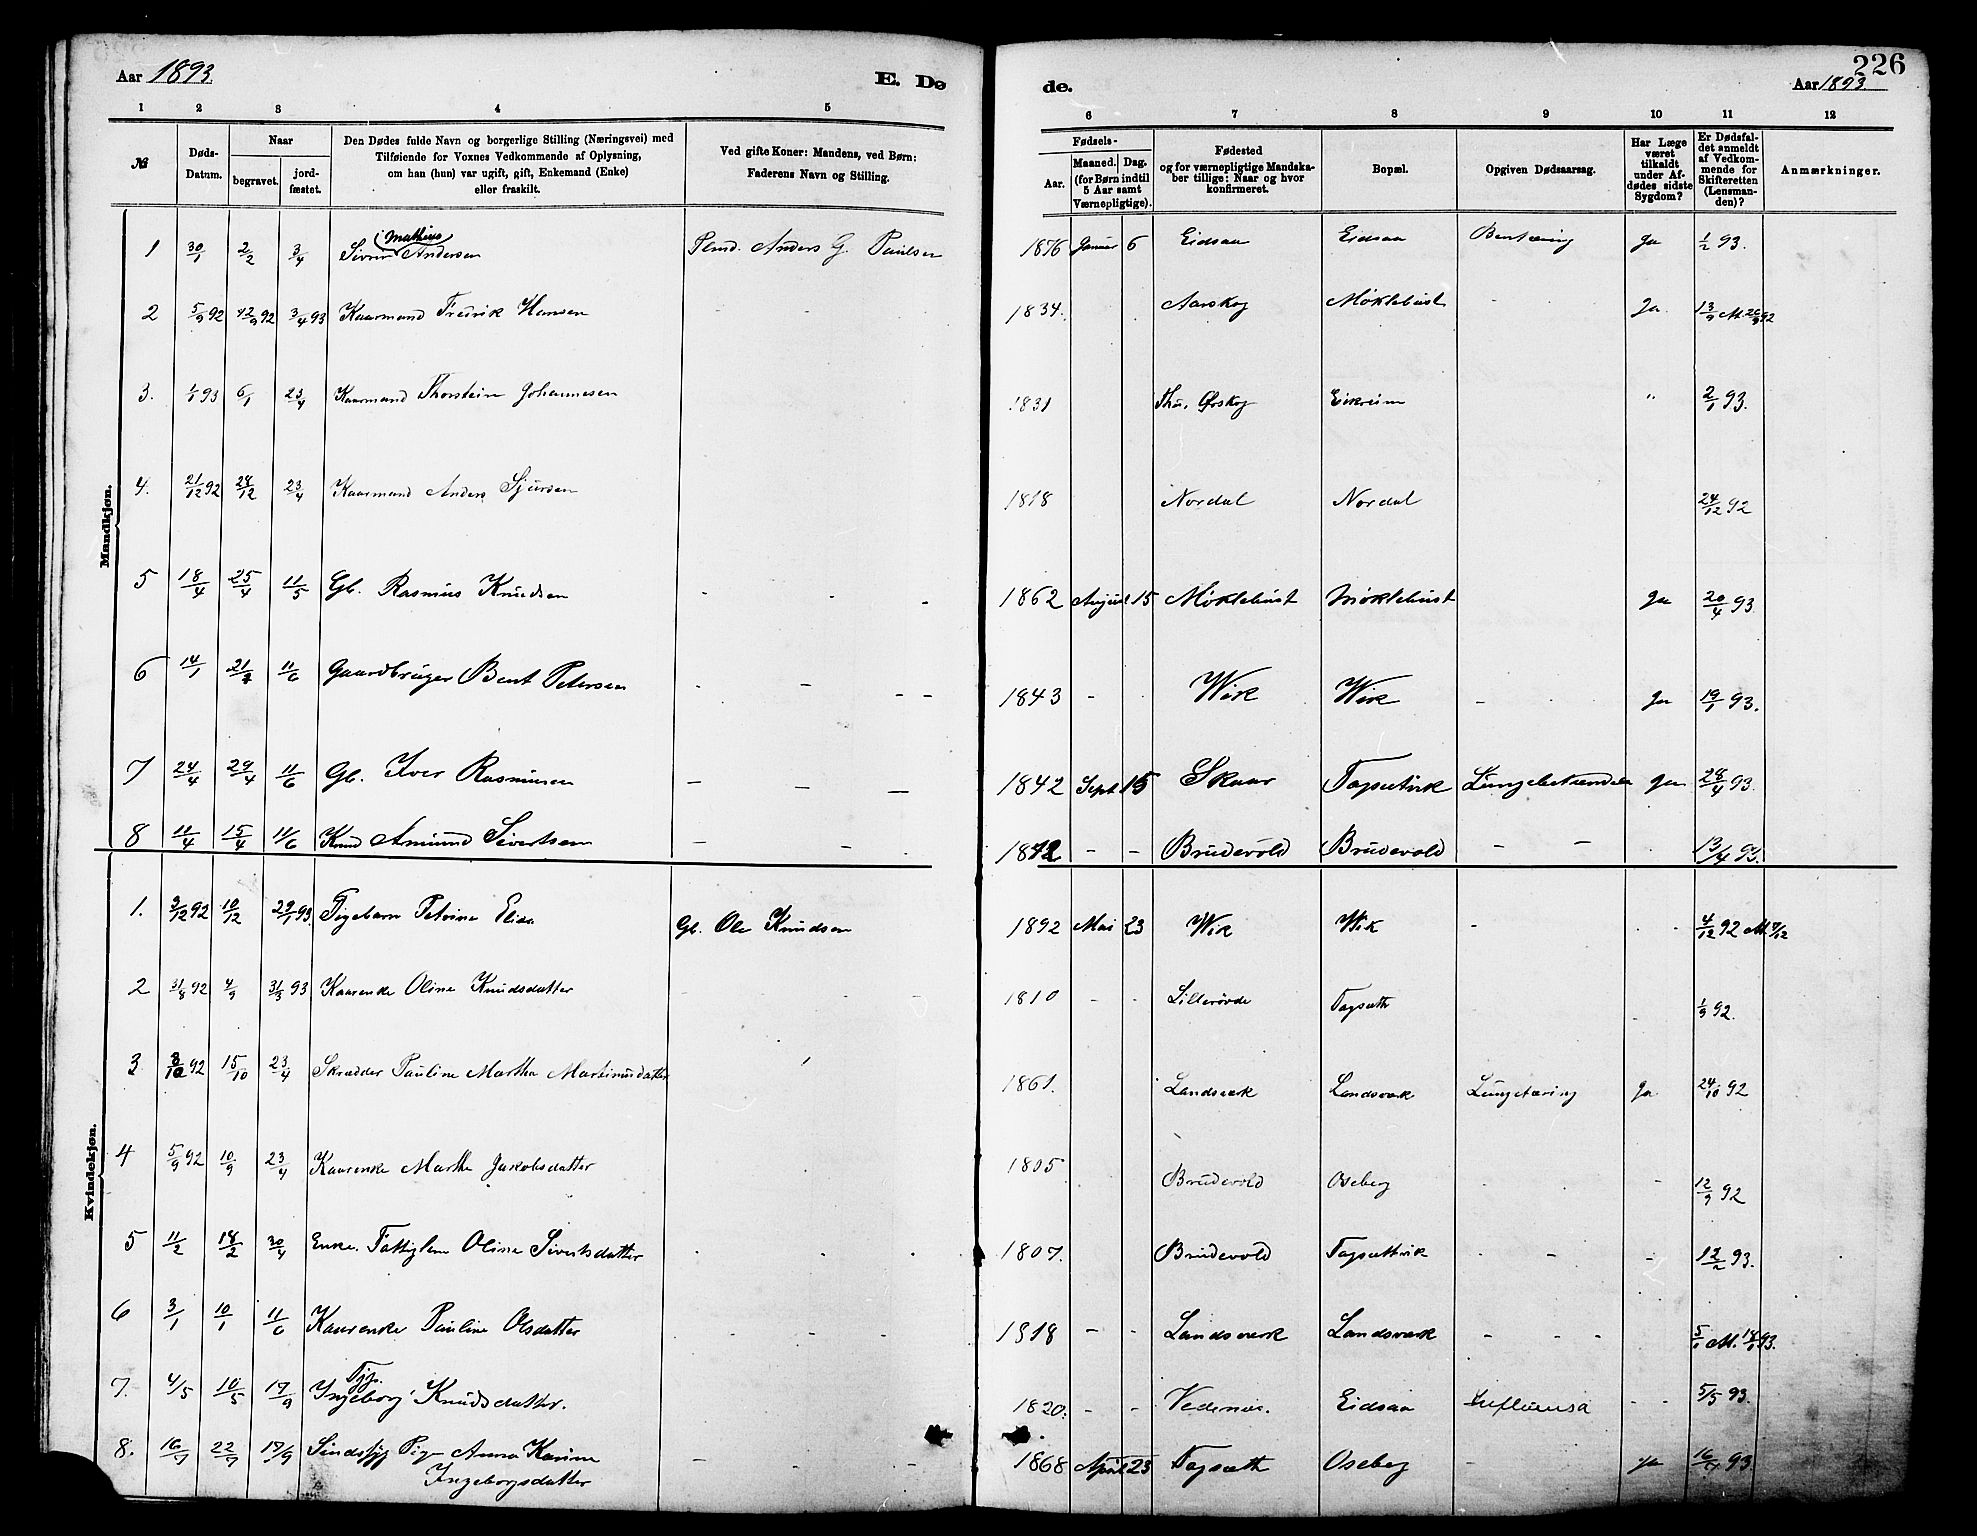 Aar 1893.
E. Dø
1 2 3 4 5
№
Døds-Datum.
Naar
begravet.
jordfæstet.
Den Dødes fulde Navn og borgerlige Stilling (Næringsvei) med
Tilføiende for Voxnes Vedkommende af Oplysning,
om han (hun) var ugift, gift, Enkemand (Enke)
eller fraskilt.
Ved gifte Koner: Mandens, ved Børn:
Faderens Navn og Stilling.
Mandkjøn.
Mathias
1 30/1 2/2 3/4 Andersen Anders G. Paulsen
2 5/9 92 12/9 92 3/4 93 Kaarmand Fredrik Hansen
3. 1/1 93 6/1 23/4 Kaarmand Thorstein Johannesen
4. 21/12 92 28/12 23/4 Kaarmand Anders Sjursen
5 18/4 25/4 11/5 Gb. Rasmus Knudsen
6 14/1 11/6 Gaardbruger Bent Petersen
7 24/4 29/4 11/6 Gb. Iver Rasmussen
8 11/4 15/4 11/6 Knud Amund Sivertsen
Kvindekjøn.
1. 3/12 92 10/12 29/1 93. Pigebarn Petrine Elisa Gb. Ole Knudsen
2 31/8 92 4/9 31/3 93 Kaarenke Oline Knudsdatter
3 92 15/10 23/4 Skrædder Pauline Martha Martinusdatter
4 5/9 92 10/9 23/4 Kaarenke Marthe Jakobsdatter
5 11/2 18/2 30/4 Enke. Fattiglem Oline Sivertsdatter
6 3/1 10/1 11/6 Kaarenke Pauline Olsdatter
7. 4/5 10/5 17/9 Ingeborg Knudsdatter.
8. 22/7 17/9 Sindssyg Pige Anna Karine
Ingeborgsdatter
226
de.
Aar 1893
6 7 8 9 10 11 12
Fødsels-
Aar.
Maaned. Dag.
(for Børn indtil
5 Aar samt
Værnepligtige).
Fødested
og for værnepligtige Mandskaber tillige: Naar og hvor
konfirmeret.
Bopæl.
Opgiven Dødsaarsag.
Har Læge
været
tilkaldt
under Afdødes sidste
Sygdom?
Er Dødsfaldet anmeldt
af Vedkommende for
Skifteretten
(Lensmanden)?
Anmærkninger.
1876 Januar 6 Eidsaa Eidsaa Bentæring Ja 1/2 93.
1834. Aarskog Møklebust Ja 13/9 M. 92
1831 Ørskog Eikreim " 2/1 93.
1818 Nordal Nordal 24/12 92
1862 August 15 Møklebust Møklebust Ja 20/4 93
1843 Wik Wik Ja 19/1 93.
1842 Sept. 15 Skaar Tagsetvik Lungebetændelse Ja 28/4 93.
Brudevold Brudevold 13/4 93.
1892 Mai 23 Wik Wik 4/12 92 M. 7/12
1810 Lillerøvde Tagsæth 1/9 92.
1861. Landsværk Landsværk Lungetæring Ja 24/10 92
1805 Brudevold Oseberg 12/9 92
1807. Brudevold Tagsætvik 12/2 93.
1818 Landsværk Landsværk 5/1 M. 18/1 93.
1820. Eidsaa Influensa 5/5 93.
1868 April 23 Tagsæth Oseberg Ja 93